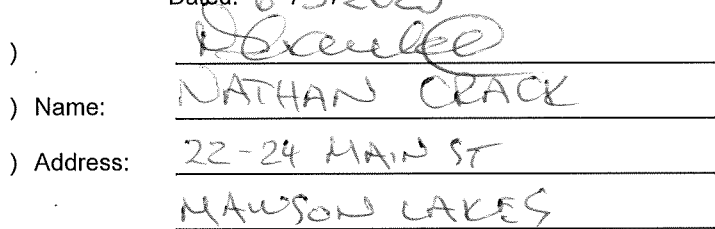 Dated:
)
) Name: NATHAN CRACK
) Address: 22-24 MAIN ST
MAWSON LAKES